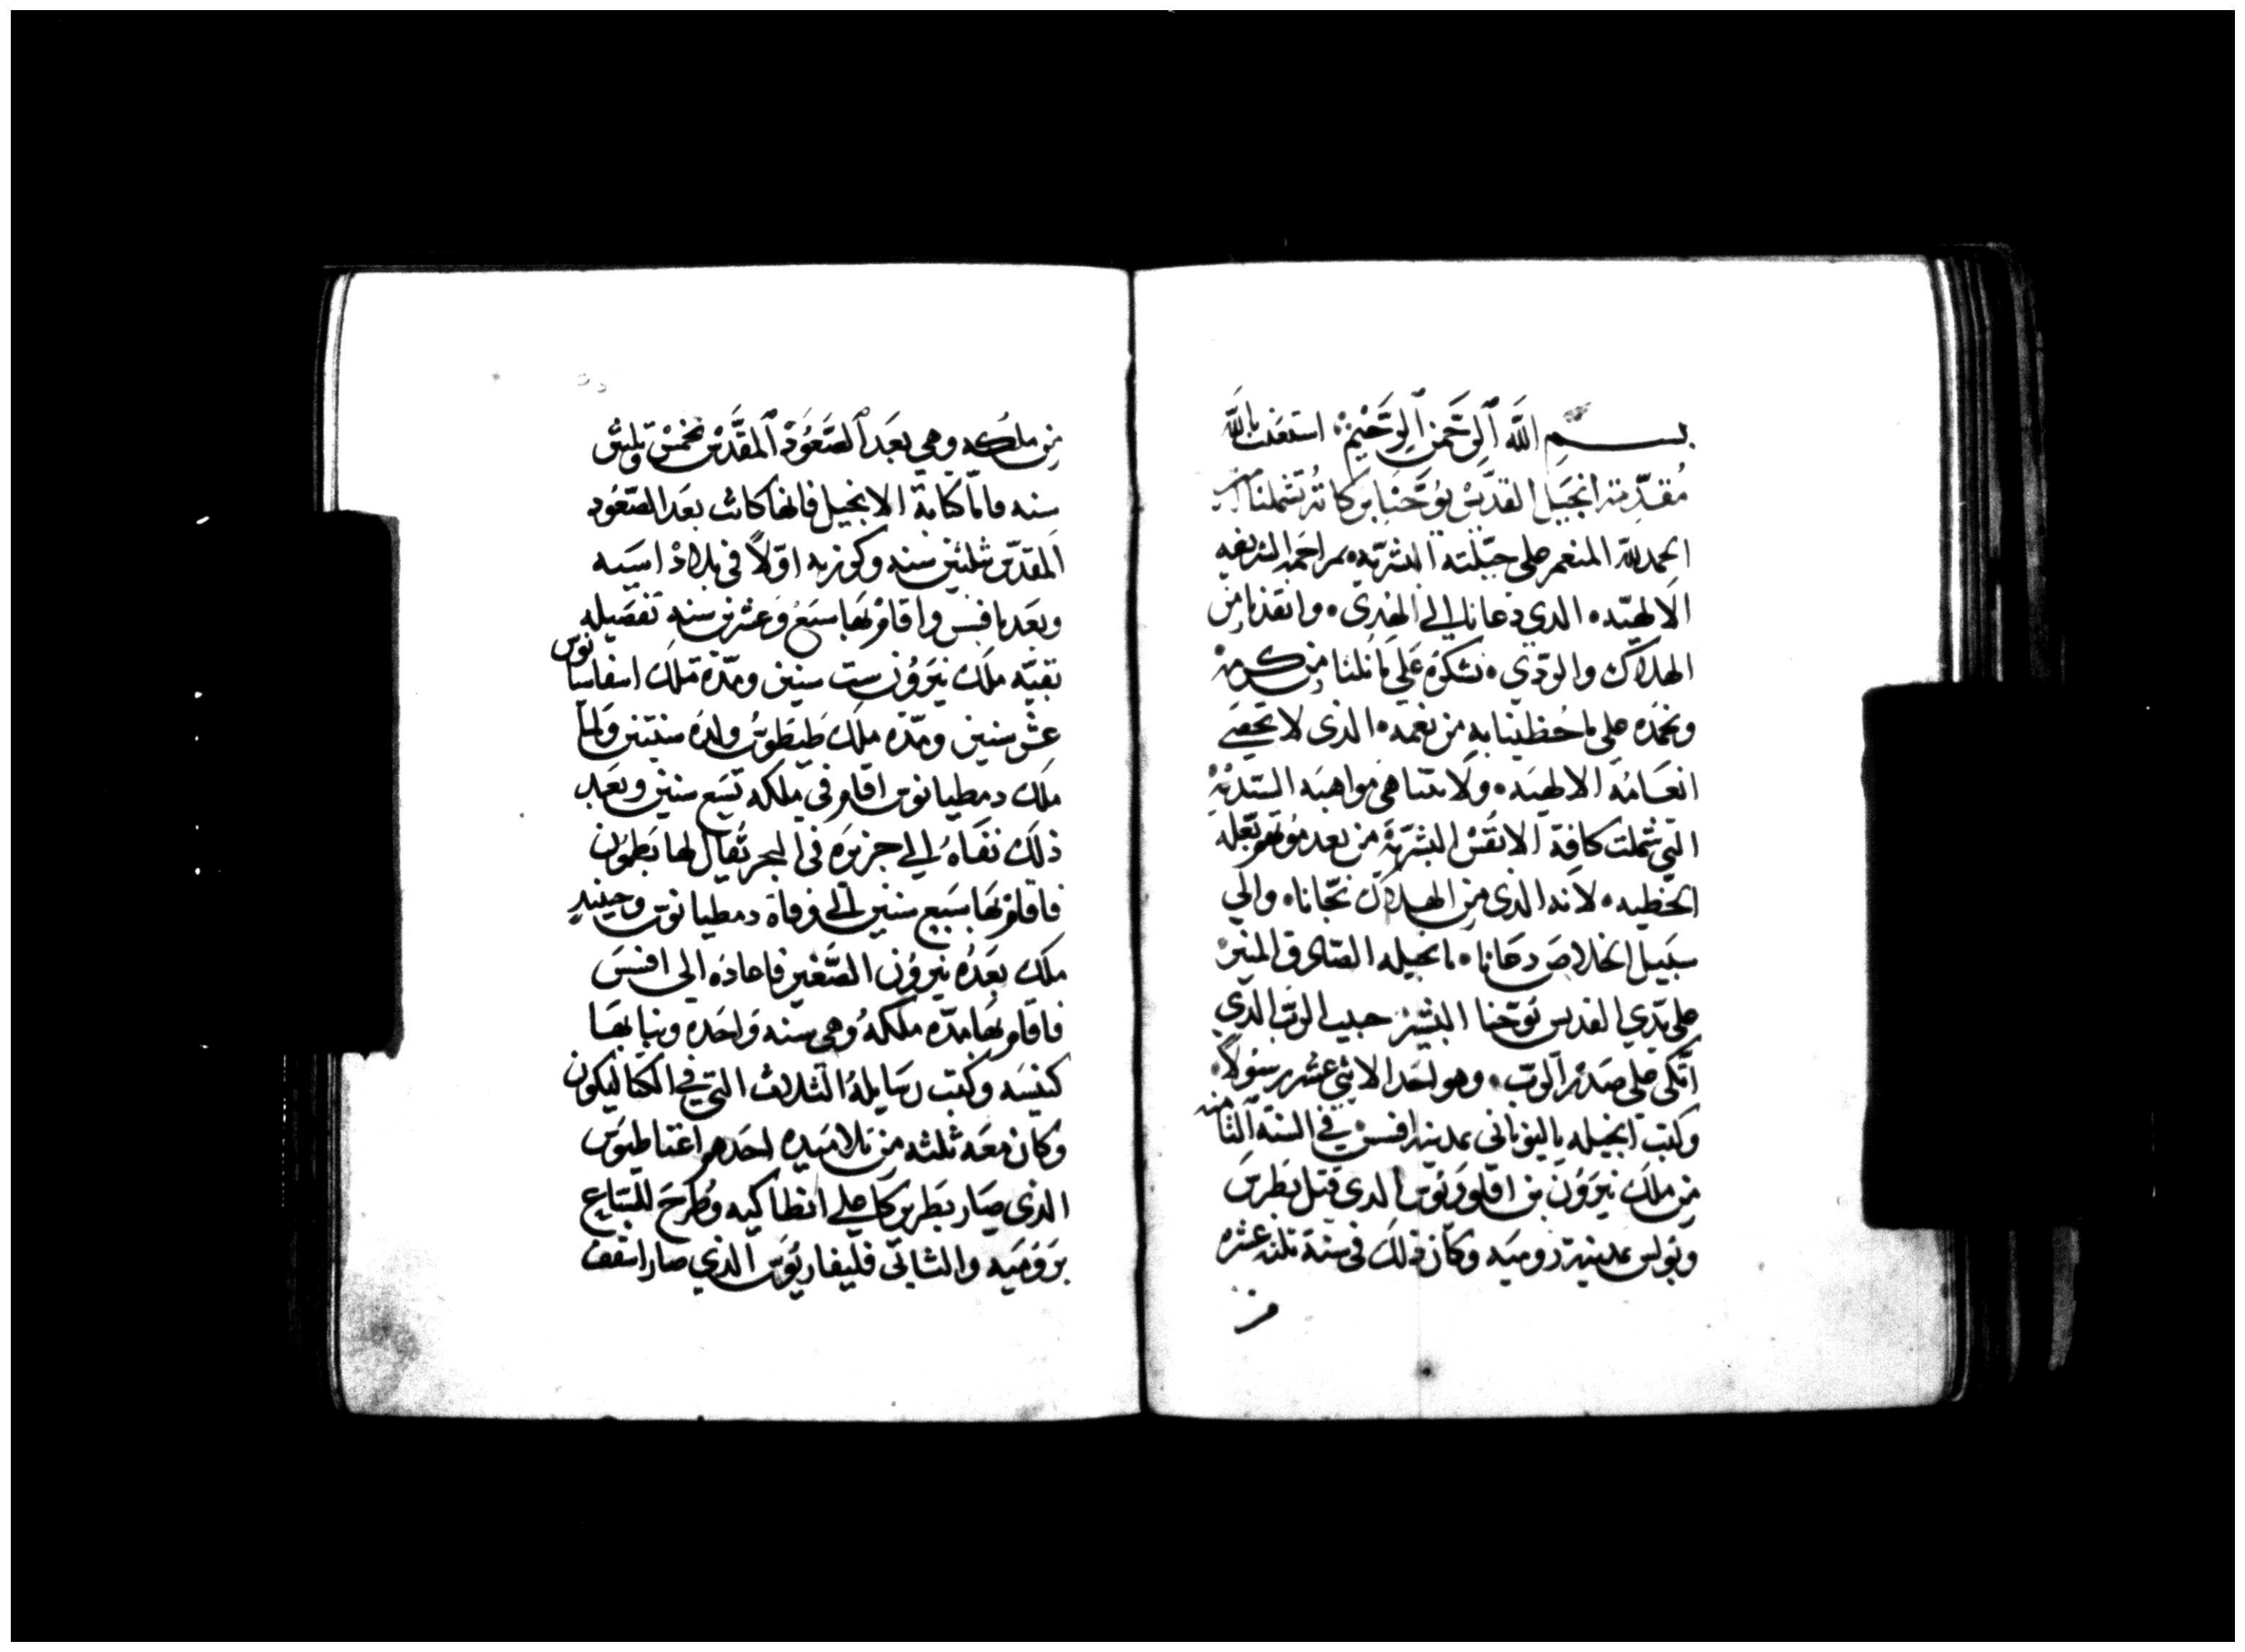 بسم الله الرحمن الرحيم استعنت بالله
مقدمة انجيل القديس يوحنا بركاته تشملنا امين
الحمد لله المنعم على جبلته البشريه بمراحمه الشريفه
الالهيه الدي دعانا الى الهدى وانقدنا من
الهلاك والردى نشكره على ما نلنا من كرمه
ونحمده على ما حظينا به من نعمه الذى لا تحصى
انعامه الالهيه ولا تتناهى مواهبه السديه
التي شملت كافة الانفس البشريه من بعد موتهم بعلة
الخطيه لانه الذى من الهلاك نجانا والي
سبيل الخلاص دعانا بانجيله الصادق المنير
على يدي القديس يوحنا البشير حبيب الرب الدي
اتكى على صدر الرب وهو احد الاثني عشر رسولاً
وكتب انجيله باليوناني بمدينة افسس في السنة الثامنه
من ملك نيرون بن اقلوديوس الدى قتل بطرس
وبولس بمدينة روميه وكان ذلك فى سنة ثلثة عشره
من
من ملكه وهي بعد الصعود المقدس بخمس وثلثين
سنه واما كتابة الانجيل فانها كانت بعد الصعود
المقدس بثلثين سنه وكرز به اولاً في بلاد اسيه
وبعدها افسس واقام بها سبع وعشرين سنه تفصيله
بقية ملك نيرون ست سنين ومدة ملك اسفاسيانوس
عشر سنين ومدة ملك طيطوس ولده سنتين ولما
ملك دمطيانوس اقام في ملكه تسع سنين وبعد
ذلك نفاه الي جزيره في البحر تقال لها بطمون
فاقام بها سبع سنين الي وفاة دمطيانوس وحينيد
ملك بعده نيرون الصغير فاعاده الى افسس
فاقام بها مدة ملكه وهي سنه واحده وبنا بها
كنيسه وكتب رسايله الثلاث التي في الكتاليكون
وكان معه ثلثه من تلاميده احدهم اغناطيوس
الذى صار بطريركا على انطاكيه وطرح للسباع
بروميه والثاني فليفاريوس الذي صار اسقف